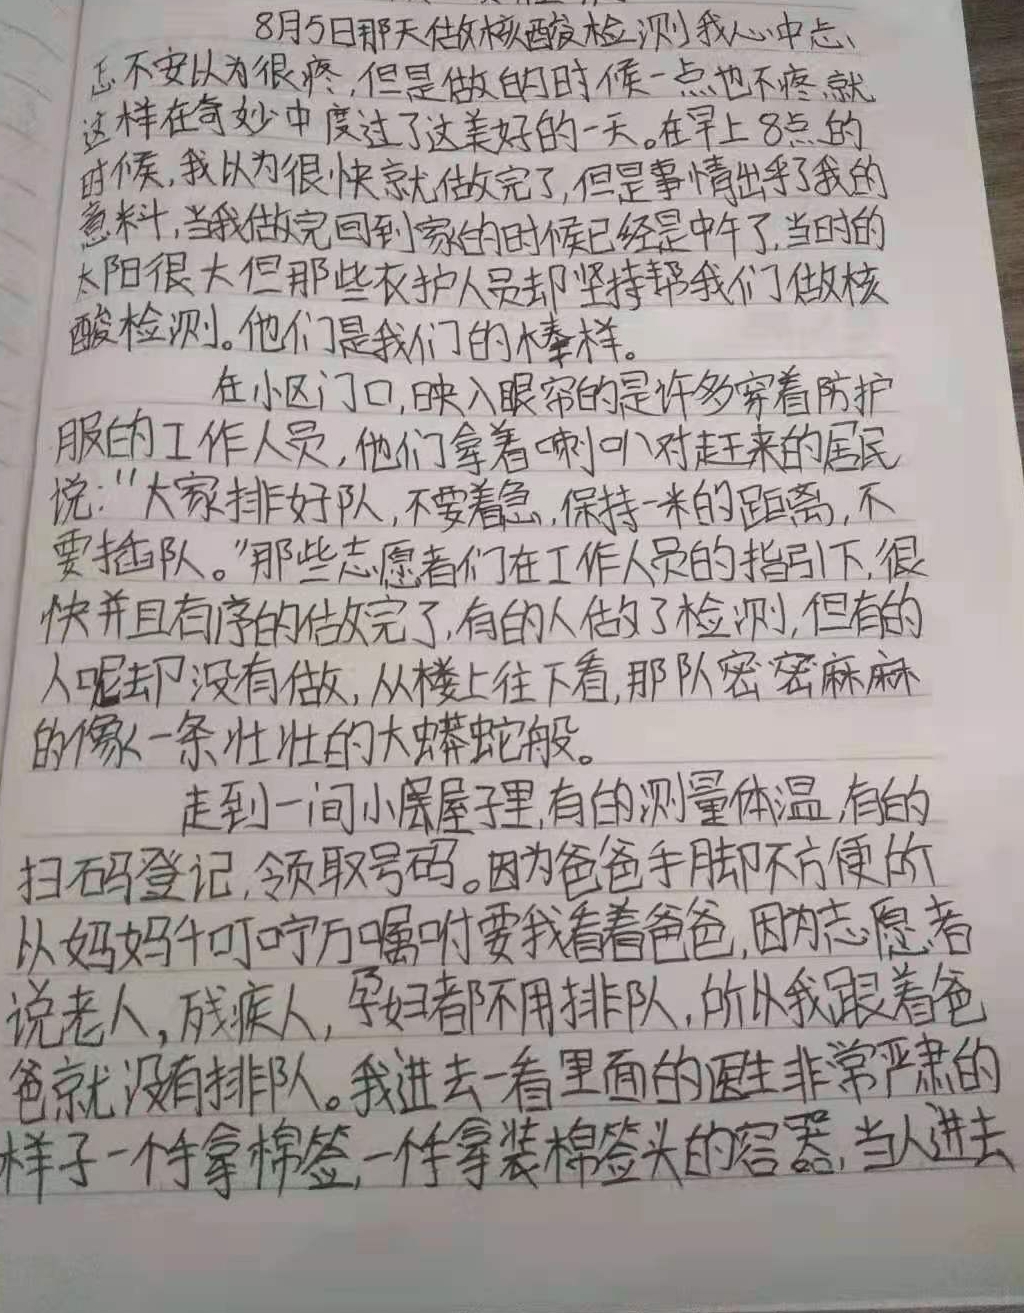 8月5日那天做核酸检测我心中忐、
忑不安以为很疼,但是做的时候一点也不疼,就
这样在奇妙中度过了这美好的一天。在早上8点的
时候,我以为很快就做完了,但是事情出乎了我的
意料,当我做完回到家的时候已经是中午了,当时的
太阳很大但那些衣护人员却坚持帮我们做核
酸检测。他们是我们的棒样。
在小区门口,映入眼帘的是许多穿着防护
服的工作人员,他们拿着喇叭对赶来的居民
说:“大家排好队,不要着急,保持一米的距离,不
要插队。”那些志愿者们在工作人员的指引下,很
快并且有序的做完了,有的人做了检测,但有的
人呢却没有做,从楼上往下看,那队密密麻麻
的像一条壮壮的大蟒蛇般。
走到一间小屋子里,有的测量体温,有的
扫码登记,领取号码。因为爸爸手脚不方便所
以妈妈千叮咛万嘱咐要我看着爸爸,因为志愿者
说老人,残疾人,孕妇都不用排队,所以我跟着爸
爸就没有排队。我进去一看里面的医生非常严肃的
样子一个手拿棉签,一个手拿装棉签头的容器,当人进去